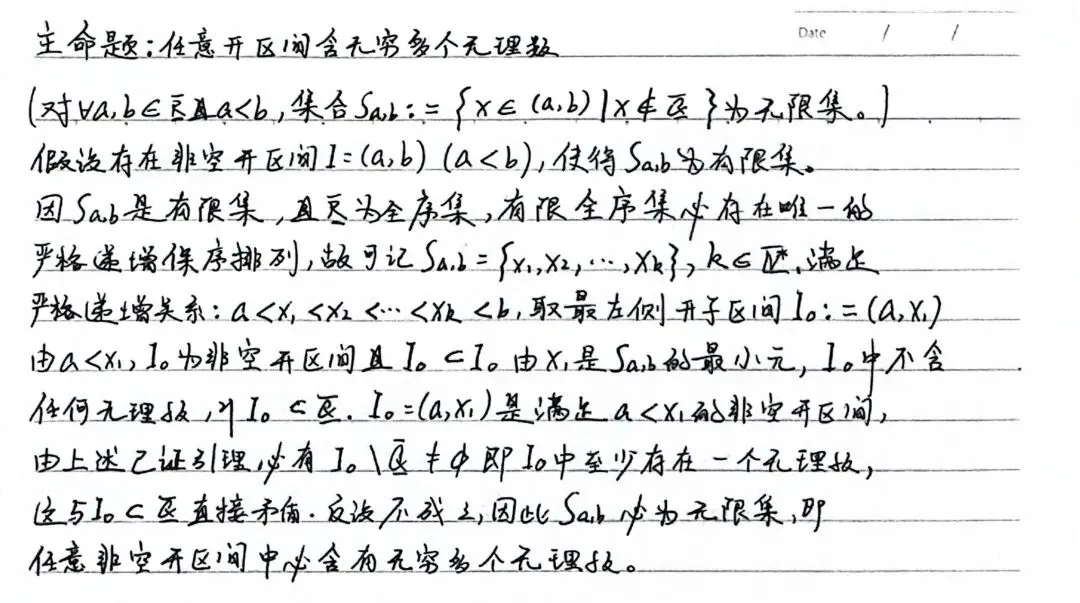 Date / /
主命题:任意开区间含无穷多个无理数
(对∀a,b∈ℝ且a<b,集合Sa,b:={x∈(a,b)|x∉ℚ}为无限集。)
假设存在非空开区间I=(a,b)(a<b),使得Sa,b为有限集。
因Sa,b是有限集,且ℝ为全序集,有限全序集必存在唯一的
严格递增保序排列,故可记Sa,b={x₁,x₂,…,xk},k∈ℤ⁺,满足
严格递增关系:a<x₁<x₂<…<xk<b,取最左侧开子区间I₀:=(a,x₁)
由a<x₁,I₀为非空开区间且I₀⊂I₀由x₁是Sa,b的最小元,I₀中不含
任何无理数,则I₀⊂ℚ.I₀=(a,x₁)是满足a<x₁的非空开区间,
由上述已证引理,必有I₀\ℚ≠∅即I₀中至少存在一个无理数,
这与I₀⊂ℚ直接矛盾.反设不成立,因此Sa,b必为无限集,即
任意非空开区间中必含有无穷多个无理数。